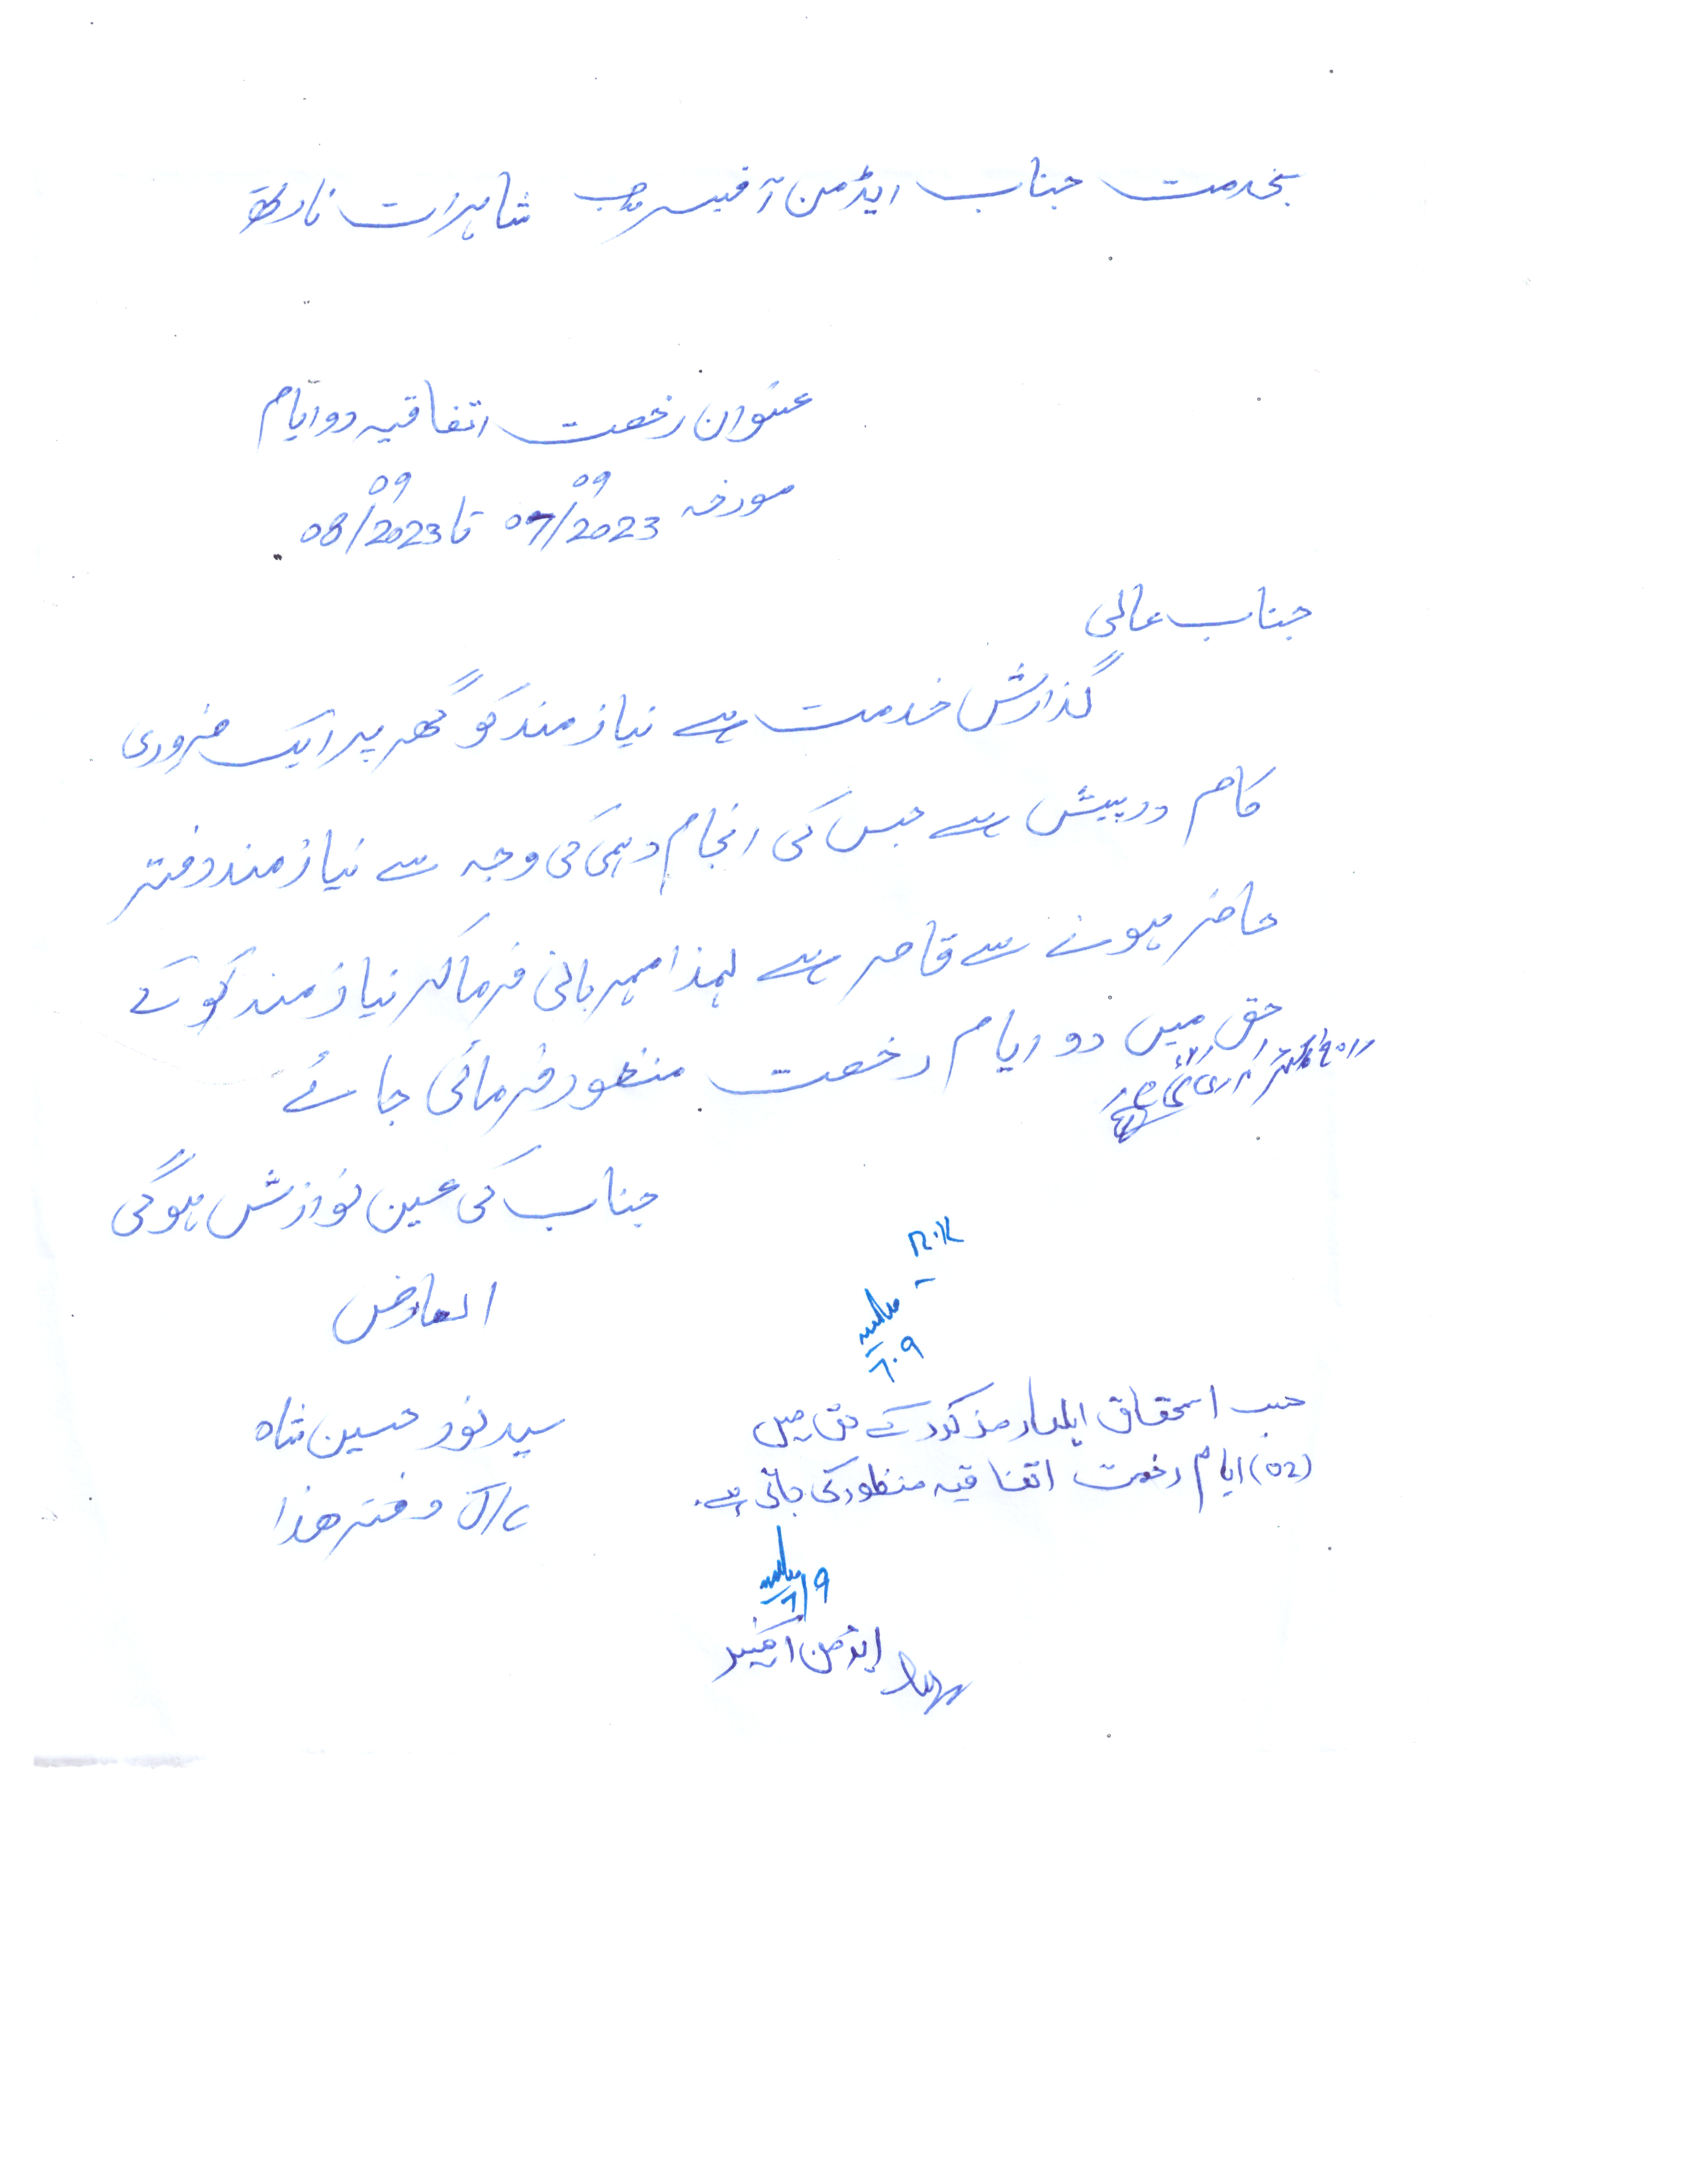 بخدمت جناب ایڈمن آفیسر صاحب شاہرات نارتھ
عنوان رخصت اتفاقیہ دو ایام
مورخہ 07/09/2023 تا 08/09/2023
جناب عالی
گذارش خدمت ہے نیاز مند کو گھر پر ایک ضروری
کام درپیش ہے جس کی انجام دہی کی وجہ سے نیاز مند دفتر
حاضر ہونے سے قاصر ہے لہذا مہربانی فرما کر نیاز مند کو کے
حق میں دو ایام رخصت منظور فرمائی جائے
جناب کی عین نوازش ہوگی
العارض
سید نور حسین شاہ
دفتر ھذا
R.K
7.9
حسب استحقاق اہلکار مذکور کے حق میں
(02) ایام رخصت اتفاقیہ منظور کی جاتی ہے۔
7/9
ایڈمن آفیسر